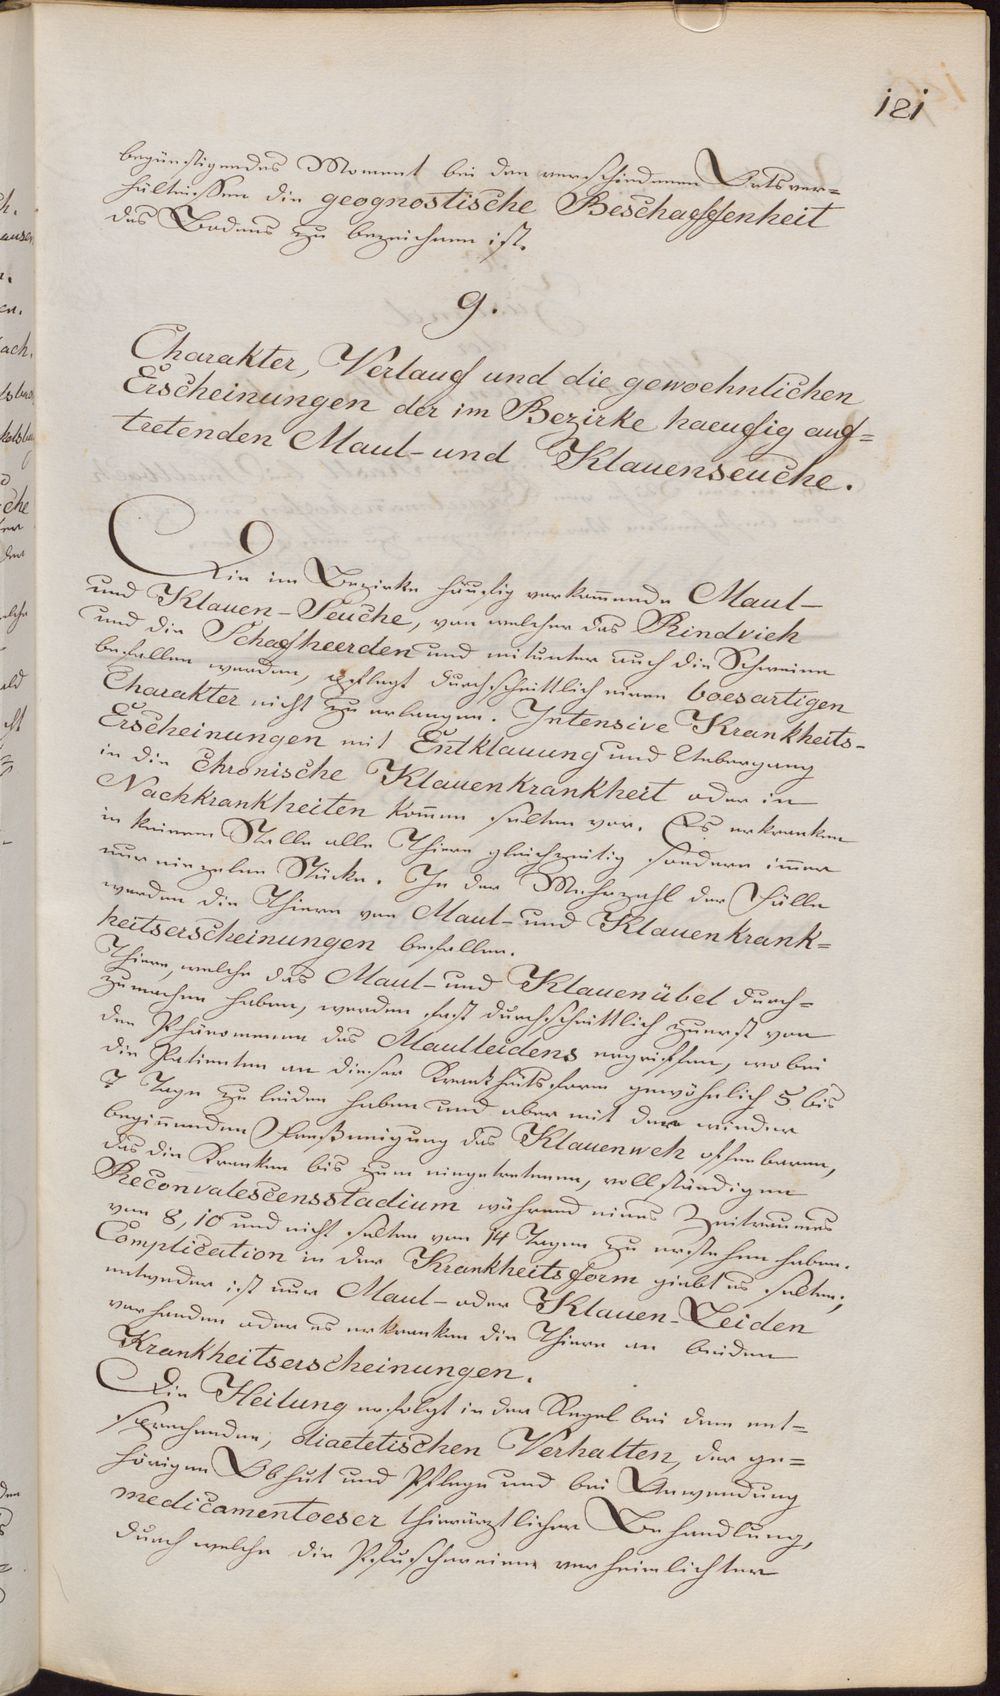 121
begünstigendes Moment bei den verschiedenen Ortsver=
hältnissen die geognostische Beschaffenheit
des Bodens zu bezeichnen ist.
9.
Charakter, Verlauf und die gewoehnlichen
Erscheinungen der im Bezirke haeufig auf=
tretenden Maul- und Klauenseuche.
Die im Bezirke häufig vorkom̅ende Maul-
und Klauen-Seuche, von welcher das Rindvieh
und die Schafheerden und mitunter auch die Schweine
befallen werden, pflegt durchschnittlich einen boesartigen
Charakter nicht zu erlangen. Intensive Krankheits-
Erscheinungen mit Entklauung und Uebergang
in die chronische Klauenkrankheit oder in
Nachkrankheiten kom̅en selten vor. Es erkranken
in keinem Stalle alle Thiere gleichzeitig sondern im̅er
nur einzelne Stücke. In der Mehrzahl der Fälle
werden die Thiere von Maul- und Klauenkrank=
heitserscheinungen befallen.
Thiere, welche das Maul- und Klauenübel durch=
zumachen haben, werden fast durchschnittlich zuerst von
den Phänomenen des Maulleidens ergriffen, wobei
die Patienten an dieser Krankheitsform gewöhnlich 5 bis
7 Tage zu leiden haben und aber mit der wieder
begin̅enden Freßneigung das Klauenweh offenbaren,
das die Kranken bis zum eingetretenen, vollständigen
Reconvalescensstadium während eines Zeitraumes
von 8, 10 und nicht selten von 14 Tagen zu erstehen haben.
Complication in der Krankheitsform giebt es selten;
entweder ist nur Maul- oder Klauen-Leiden
vorhanden oder es erkranken die Thiere an beiden
Krankheitserscheinungen.
Die Heilung erfolgt in der Regel bei dem ent=
sprechenden, diaetetischen Verhalten, der ge=
hörigen Obhut und Pflege und bei Anwendung
medicamentoeser thierärztlicher Behandlung,
durch welche die Pfuschereien verheimlichter